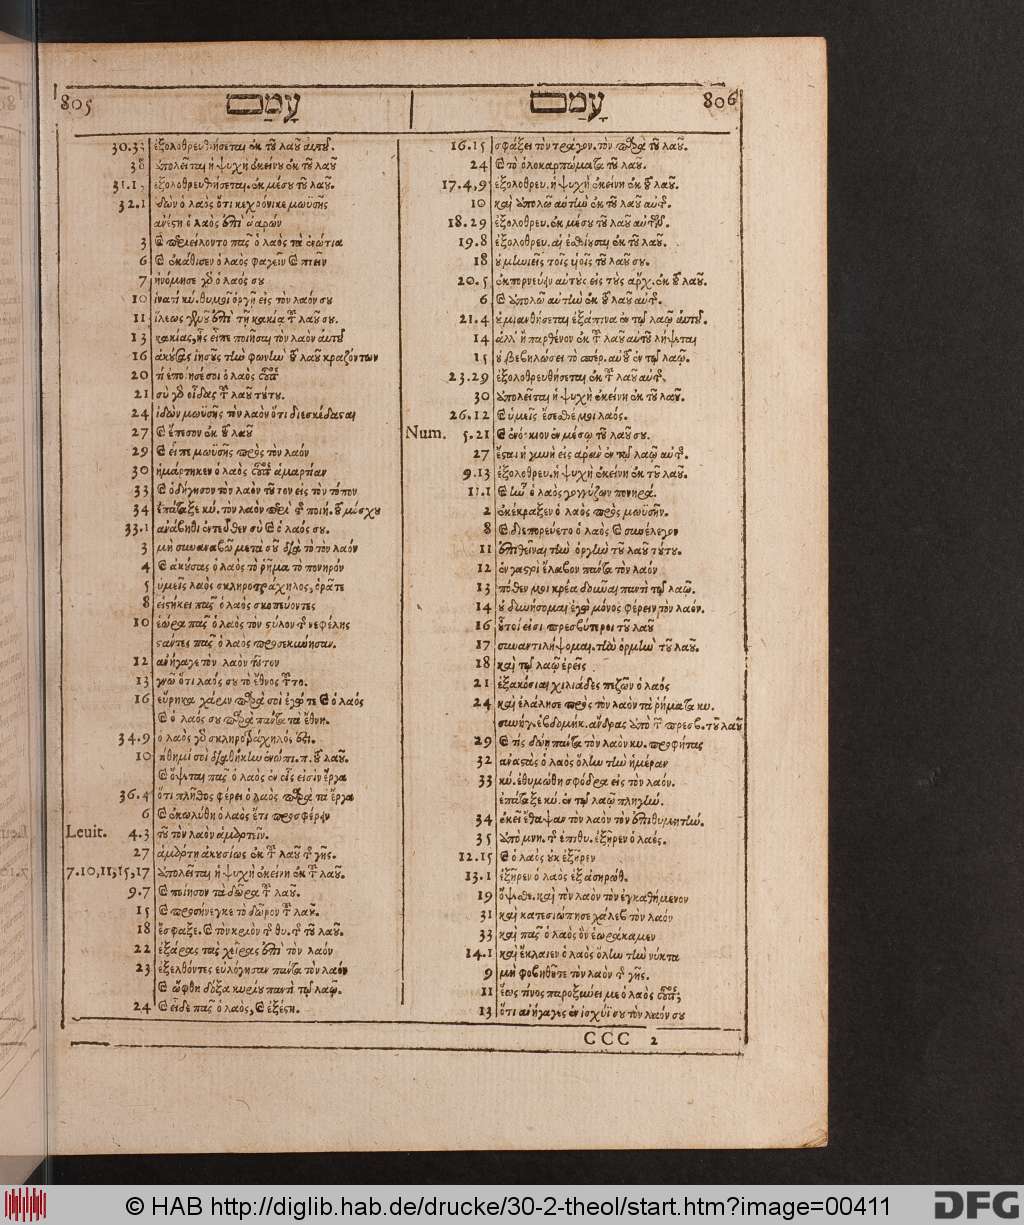 805 עָמַם | עָמַם 806
30.33 ἐξολοθρευθήσεται ἐκ τοῦ λαοῦ αὐτοῦ.
38 ἀπολεῖται ἡ ψυχὴ ἐκείνη ἐκ τοῦ λαοῦ
ἐξολοθρευθήσεται ἐκ μέσου τοῦ λαοῦ.
32.1 ἰδὼν ὁ λαὸς ὅτι κεχρόνικε μωϋσῆς
ἀνέστη ὁ λαὸς ἐπὶ ἀαρών
3 καὶ περιείλοντο πᾶς ὁ λαὸς τὰ ἐνώτια
6 καὶ ἐκάθισεν ὁ λαὸς φαγεῖν καὶ πιεῖν
7 ἠνόμησε γὸ ὁ λαός σου
10 ἱνατί κύ. θυμοῖ ὀργῇ εἰς τὸν λαόν σου
11 ἵλεως γενοῦ ἐπὶ τῇ κακίᾳ τοῦ λαοῦ σου.
13 κακίας, ἧς εἶπε ποιῆσαι τὸν λαὸν αὐτοῦ
16 ἀκούσας ἰησοῦς τὴν φωνὴν τοῦ λαοῦ κραζόντων
20 τί ἐποίησέ σοι ὁ λαὸς οὗτος
21 σὺ γὸ οἶδας τοῦ λαοῦ τούτου.
24 ἰδὼν μωϋσῆς τὸν λαὸν ὅτι διεσκέδασται
27 καὶ ἔπεσον ἐκ τοῦ λαοῦ
29 καὶ εἶπε μωϋσῆς πρὸς τὸν λαόν
30 ἡμάρτηκεν ὁ λαὸς οὗτος ἁμαρτίαν
33 καὶ ὁδήγησον τὸν λαὸν τοῦτον εἰς τὸν τόπον
34 ἐπάταξε κύ. τὸν λαὸν περὶ τῆς ποιή. τοῦ μόσχου
33.1 ἀνάβηθι ἐντεῦθεν σὺ καὶ ὁ λαός σου.
3 μὴ συναναβῶ μετὰ σοῦ διὰ τὸ τὸν λαόν
4 καὶ ἀκούσας ὁ λαὸς τὸ ῥῆμα τὸ πονηρόν
5 ὑμεῖς λαὸς σκληροτράχηλος, ὁρᾶτε
8 εἱστήκει πᾶς ὁ λαὸς σκοπεύοντες
10 ἑώρα πᾶς ὁ λαὸς τὸν στύλον τῆς νεφέλης
στάντες πᾶς ὁ λαὸς προσεκύνησαν.
12 ἀνήγαγε τὸν λαὸν τοῦτον
13 γνῶ ὅτι λαός σου τὸ ἔθνος τοῦτο.
16 εὕρηκα χάριν παρὰ σοὶ ἐγώ τε καὶ ὁ λαός
καὶ ὁ λαός σου παρὰ πάντα τὰ ἔθνη.
34.9 ὁ λαὸς γὸ σκληροτράχηλός ἐστι.
10 τίθημί σοι διαθήκην ἐνώπι. π. τοῦ λαοῦ.
καὶ ὄψεται πᾶς ὁ λαὸς ἐν οἷς εἶ σὺ ἔργα
36.4 ὅτι πλῆθος φέρει ὁ λαὸς παρὰ τὰ ἔργα
6 καὶ ἐκωλύθη ὁ λαὸς ἔτι προσφέρειν
Leuit. 4.3 τοῦ τὸν λαὸν ἁμαρτεῖν.
27 ἁμάρτῃ ἀκουσίως ἐκ τοῦ λαοῦ τῆς γῆς.
7.10,11,15,17 ἀπολεῖται ἡ ψυχὴ ἐκείνη ἐκ τοῦ λαοῦ.
9.7 καὶ ποίησον τὰ δῶρα τοῦ λαοῦ.
15 καὶ προσήνεγκε τὸ δῶρον τοῦ λαοῦ.
18 ἔσφαξε. καὶ τὸν κριὸν τῆς θυ. τῆς τοῦ λαοῦ.
22 ἐξάρας τὰς χεῖρας ἐπὶ τὸν λαόν
23 ἐξελθόντες εὐλόγησαν πάντα τὸν λαόν
καὶ ὤφθη δόξα κυρίου παντὶ τῷ λαῷ.
24 καὶ εἶδε πᾶς ὁ λαός, καὶ ἐξέστη.
16.15 σφάξει τὸν τράγον. τὸν περὶ τοῦ λαοῦ.
24 καὶ τὸ ὁλοκάρπωμα τοῦ λαοῦ.
17.4,9 ἐξολοθρευ. ἡ ψυχὴ ἐκείνη ἐκ τοῦ λαοῦ.
10 καὶ ἀπολῶ αὐτὴν ἐκ τοῦ λαοῦ αὐτῆς.
18.29 ἐξολοθρευ. ἐκ μέσου τοῦ λαοῦ αὐτῶν.
19.8 ἐξολοθρευ. αἱ ἐσθίουσαι ἐκ τοῦ λαοῦ.
18 οὐ μηνιεῖς τοῖς υἱοῖς τοῦ λαοῦ σου.
20.5 ἐκπορνεύειν αὐτοὺς εἰς τοὺς ἄρχ. ἐκ τοῦ λαοῦ.
6 καὶ ἀπολῶ αὐτὴν ἐκ τοῦ λαοῦ αὐτῆς.
21.4 οὐ μιανθήσεται ἐξάπινα ἐν τῷ λαῷ αὐτοῦ.
14 ἀλλ' ἢ παρθένον ἐκ τοῦ λαοῦ αὐτοῦ λήψεται
15 οὐ βεβηλώσει τὸ σπέρ. αὐτοῦ ἐν τῷ λαῷ.
23.29 ἐξολοθρευθήσεται ἐκ τοῦ λαοῦ αὐτῆς.
30 ἀπολεῖται ἡ ψυχὴ ἐκείνη ἐκ τοῦ λαοῦ.
26.12 καὶ ὑμεῖς ἔσεσθέ μοι λαός.
Num. 5.21 καὶ ἐνόρκιον ἐν μέσῳ τοῦ λαοῦ σου.
27 ἔσται ἡ γυνὴ εἰς ἀρὰν ἐν τῷ λαῷ αὐτῆς.
9.13 ἐξολοθρευ. ἡ ψυχὴ ἐκείνη ἐκ τοῦ λαοῦ.
11.1 καὶ ἦν ὁ λαὸς γογγύζων πονηρά.
2 ἐκέκραξεν ὁ λαὸς πρὸς μωυσῆν.
8 καὶ διεπορεύετο ὁ λαὸς καὶ συνέλεγον
11 ἐπιθεῖναι τὴν ὀργὴν τοῦ λαοῦ τούτου.
12 ἐν γαστρὶ ἔλαβον πάντα τὸν λαόν
13 πόθεν μοι κρέα δοῦναι παντὶ τῷ λαῷ.
14 οὐ δυνήσομαι ἐγὼ μόνος φέρειν τὸν λαόν.
16 οὗτοί εἰσι πρεσβύτεροι τοῦ λαοῦ
17 συναντιλήψομαι. τὴν ὁρμὴν τοῦ λαοῦ.
18 καὶ τῷ λαῷ ἐρεῖς
21 ἑξακόσιαι χιλιάδες πεζῶν ὁ λαός
24 καὶ ἐλάλησε πρὸς τὸν λαὸν τὰ ῥήματα κυ.
συνήγ. ἑβδομήκ. ἄνδρας ἀπὸ τῶν πρεσβ. τοῦ λαοῦ
29 καὶ τίς δῴη πάντα τὸν λαὸν κυ. προφήτας
32 ἀναστὰς ὁ λαὸς ὅλην τὴν ἡμέραν
33 κύ. ἐθυμώθη σφόδρα εἰς τὸν λαόν.
ἐπάταξε κύ. ἐν τῷ λαῷ πληγήν.
34 ἐκεῖ ἔθαψαν τὸν λαὸν τὸν ἐπιθυμητήν.
35 ἀπὸ μνη. τῆς ἐπιθυ. ἐξῆρεν ὁ λαός.
12.15 καὶ ὁ λαὸς οὐκ ἐξῆρεν
13.1 ἐξῆρεν ὁ λαὸς ἐξ ἀσηρώθ.
19 ὄψεσθε. καὶ τὸν λαὸν τὸν ἐγκαθήμενον
31 καὶ κατεσιώπησε χάλεβ τὸν λαόν
33 καὶ πᾶς ὁ λαὸς ὃν ἑωράκαμεν
14.1 καὶ ἔκλαιεν ὁ λαὸς ὅλην τὴν νύκτα
9 μὴ φοβηθῆτε τὸν λαὸν τῆς γῆς.
11 ἕως τίνος παροξύνει με ὁ λαὸς οὗτος;
13 ὅτι ἀνήγαγες ἐν ἰσχύϊ σου τὸν λαόν σου
CCC 2
© HAB http://diglib.hab.de/drucke/30-2-theol/start.htm?image=00411
DFG